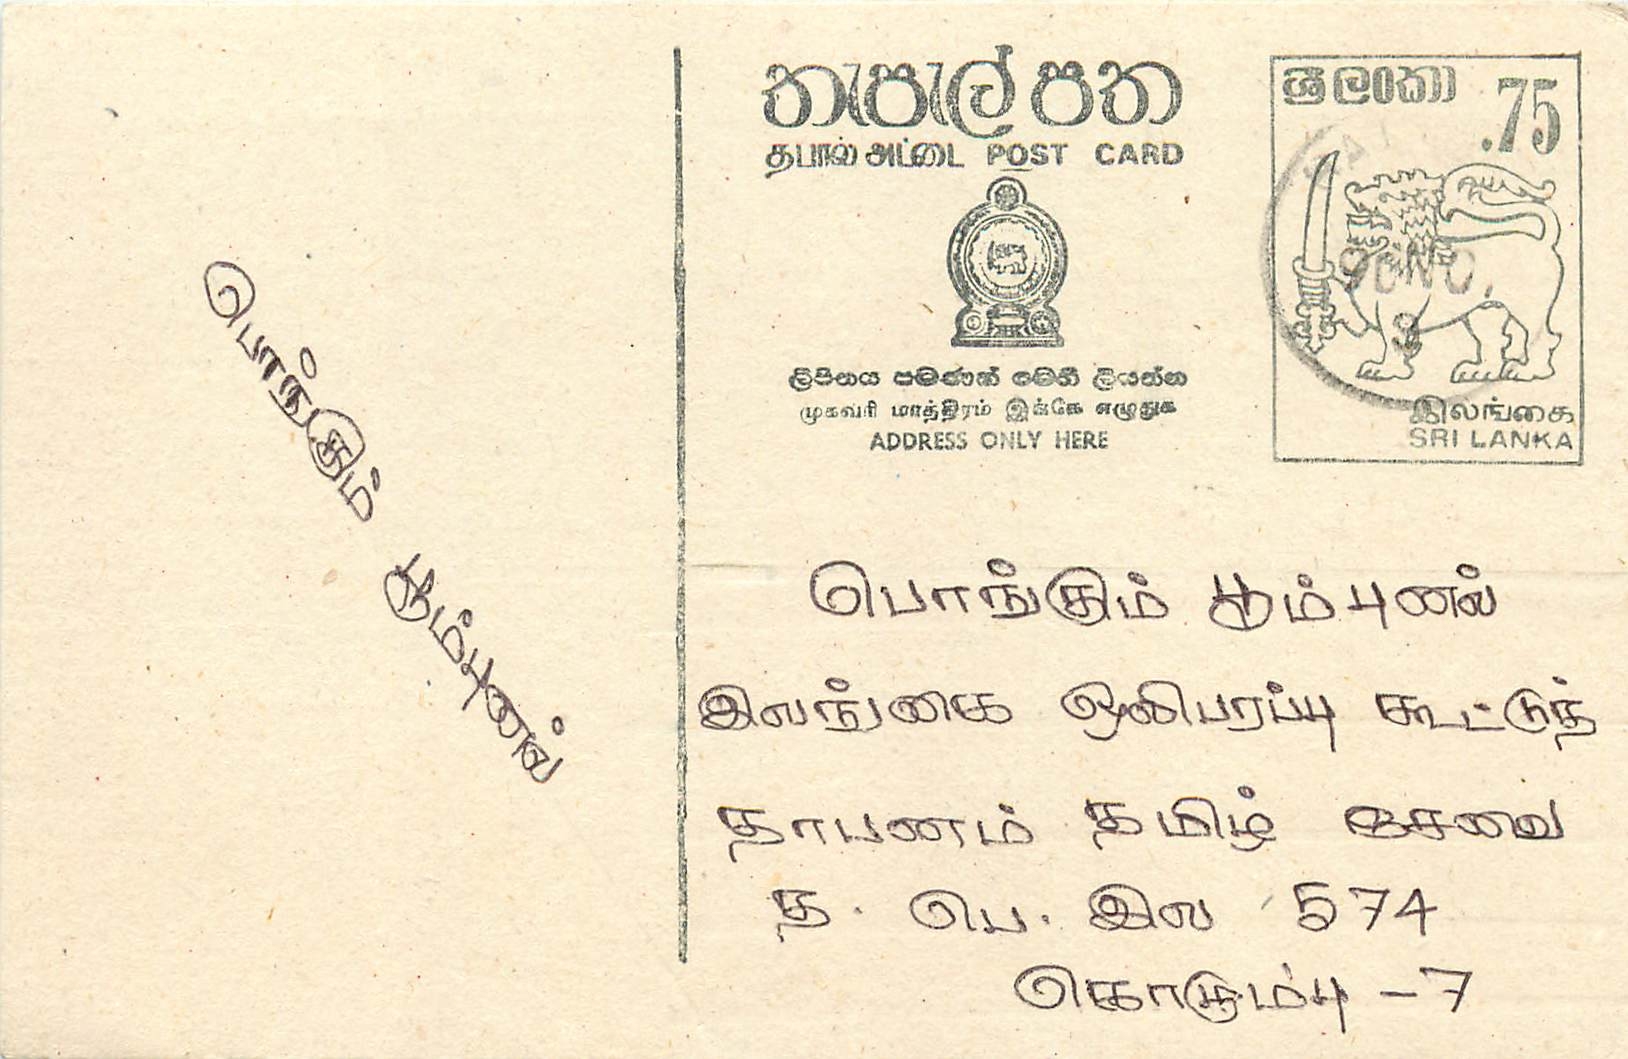 තැපැල් පත
தபால் அட்டை POST CARD
ලිපිනය පමණක් මෙහි ලියන්න
முகவரி மாத்திரம் இங்கே எழுதுக
ADDRESS ONLY HERE
ශ්‍රී ලංකා .75
இலங்கை
SRI LANKA
பொங்கும் பூம்புனல்
பொங்கும் பூம்புனல்
இலங்கை ஒலிபரப்பு கூட்டுத்
தாபனம் தமிழ் சேவை
த. பெ. இல 574
கொழும்பு - 7